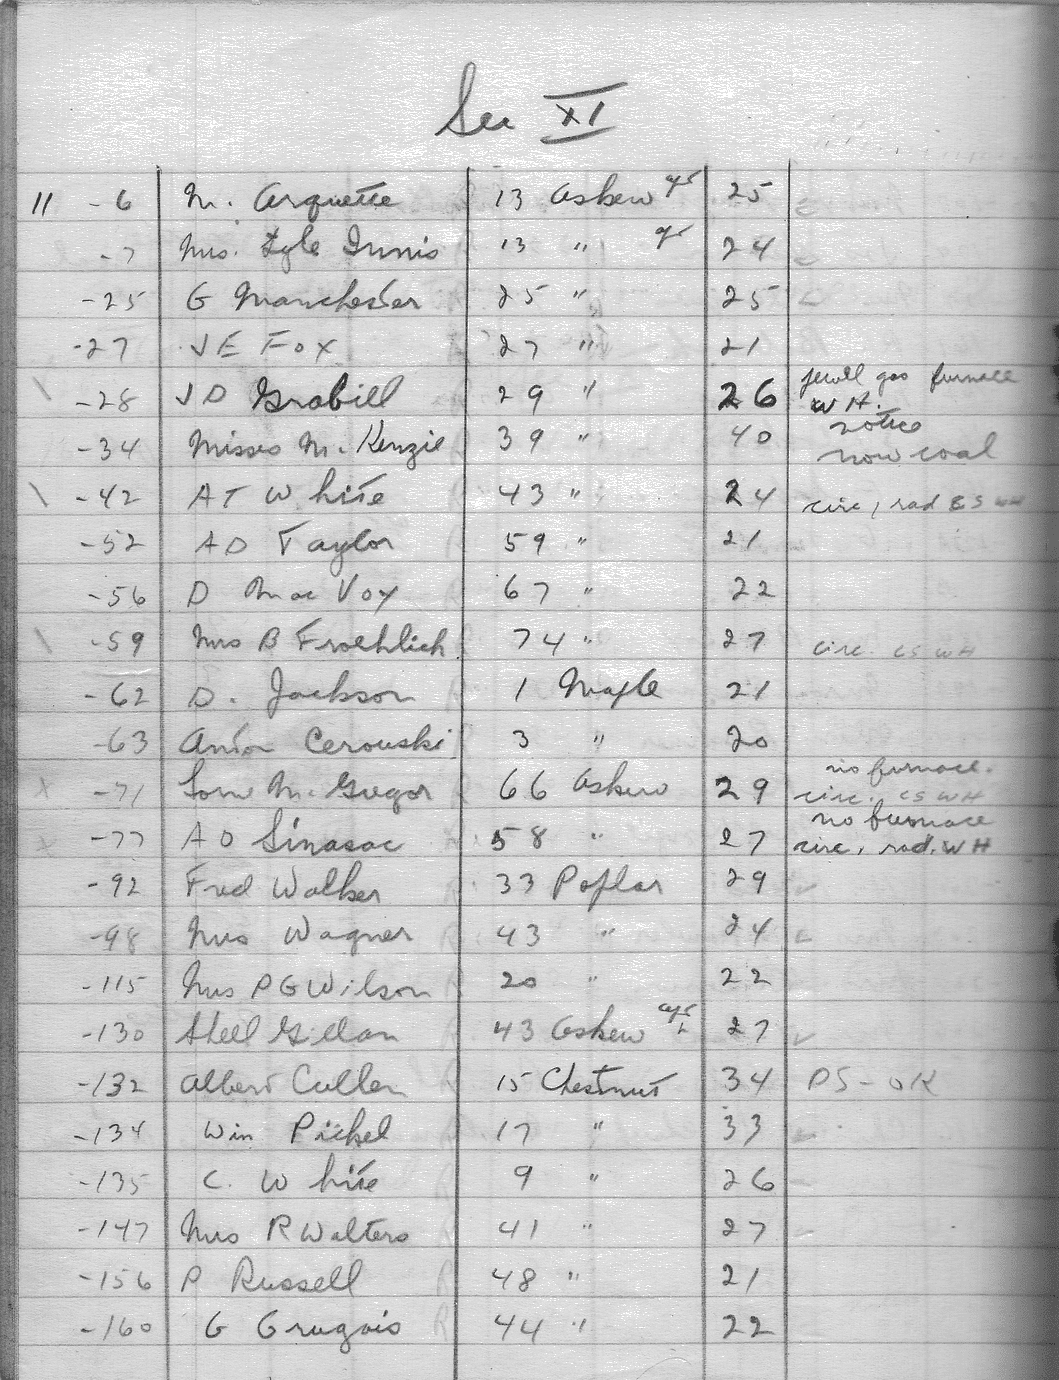 Sec XI
11 -6 M. Arquette 13 Askew apt 25
-7 Mrs. Lyle Innis 13 " 24
-25 G Manchester 25 " 25
-27 J E Fox 27 " 21
\ -28 J D Grabill 29 " 26 gas furnace W H.
-34 Misses Mc Kenzie 39 " 40 notice now coal
\ -42 A T White 43 " 24 circ, rad CS WH
-52 A D Taylor 59 " 21
-56 D Mac Voy 67 " 22
\ -59 Mrs B Froehlich 74 " 27 circ. CS WH
-62 D. Jackson 1 Maple 21
-63 Anton Cerouski 3 " 20
x -71 Lorne Mc Gregor 66 Askew 29 no furnace. circ. CS WH
x -77 A O Sinasac 58 " 27 no furnace circ, rad. WH
-92 Fred Walker 33 Poplar 29
-98 Mrs Wagner 43 " 24
-115 Mrs P G Wilson 20 " 22
-130 43 Askew 27
-132 Albert Cullen 15 Chestnut 34 PS-OK
-134 Win Pickel 17 " 33
-135 C. White 9 " 26
-147 Mrs R Walters 41 " 27
-156 P Russell 48 " 21
-160 G Gragois 44 " 22